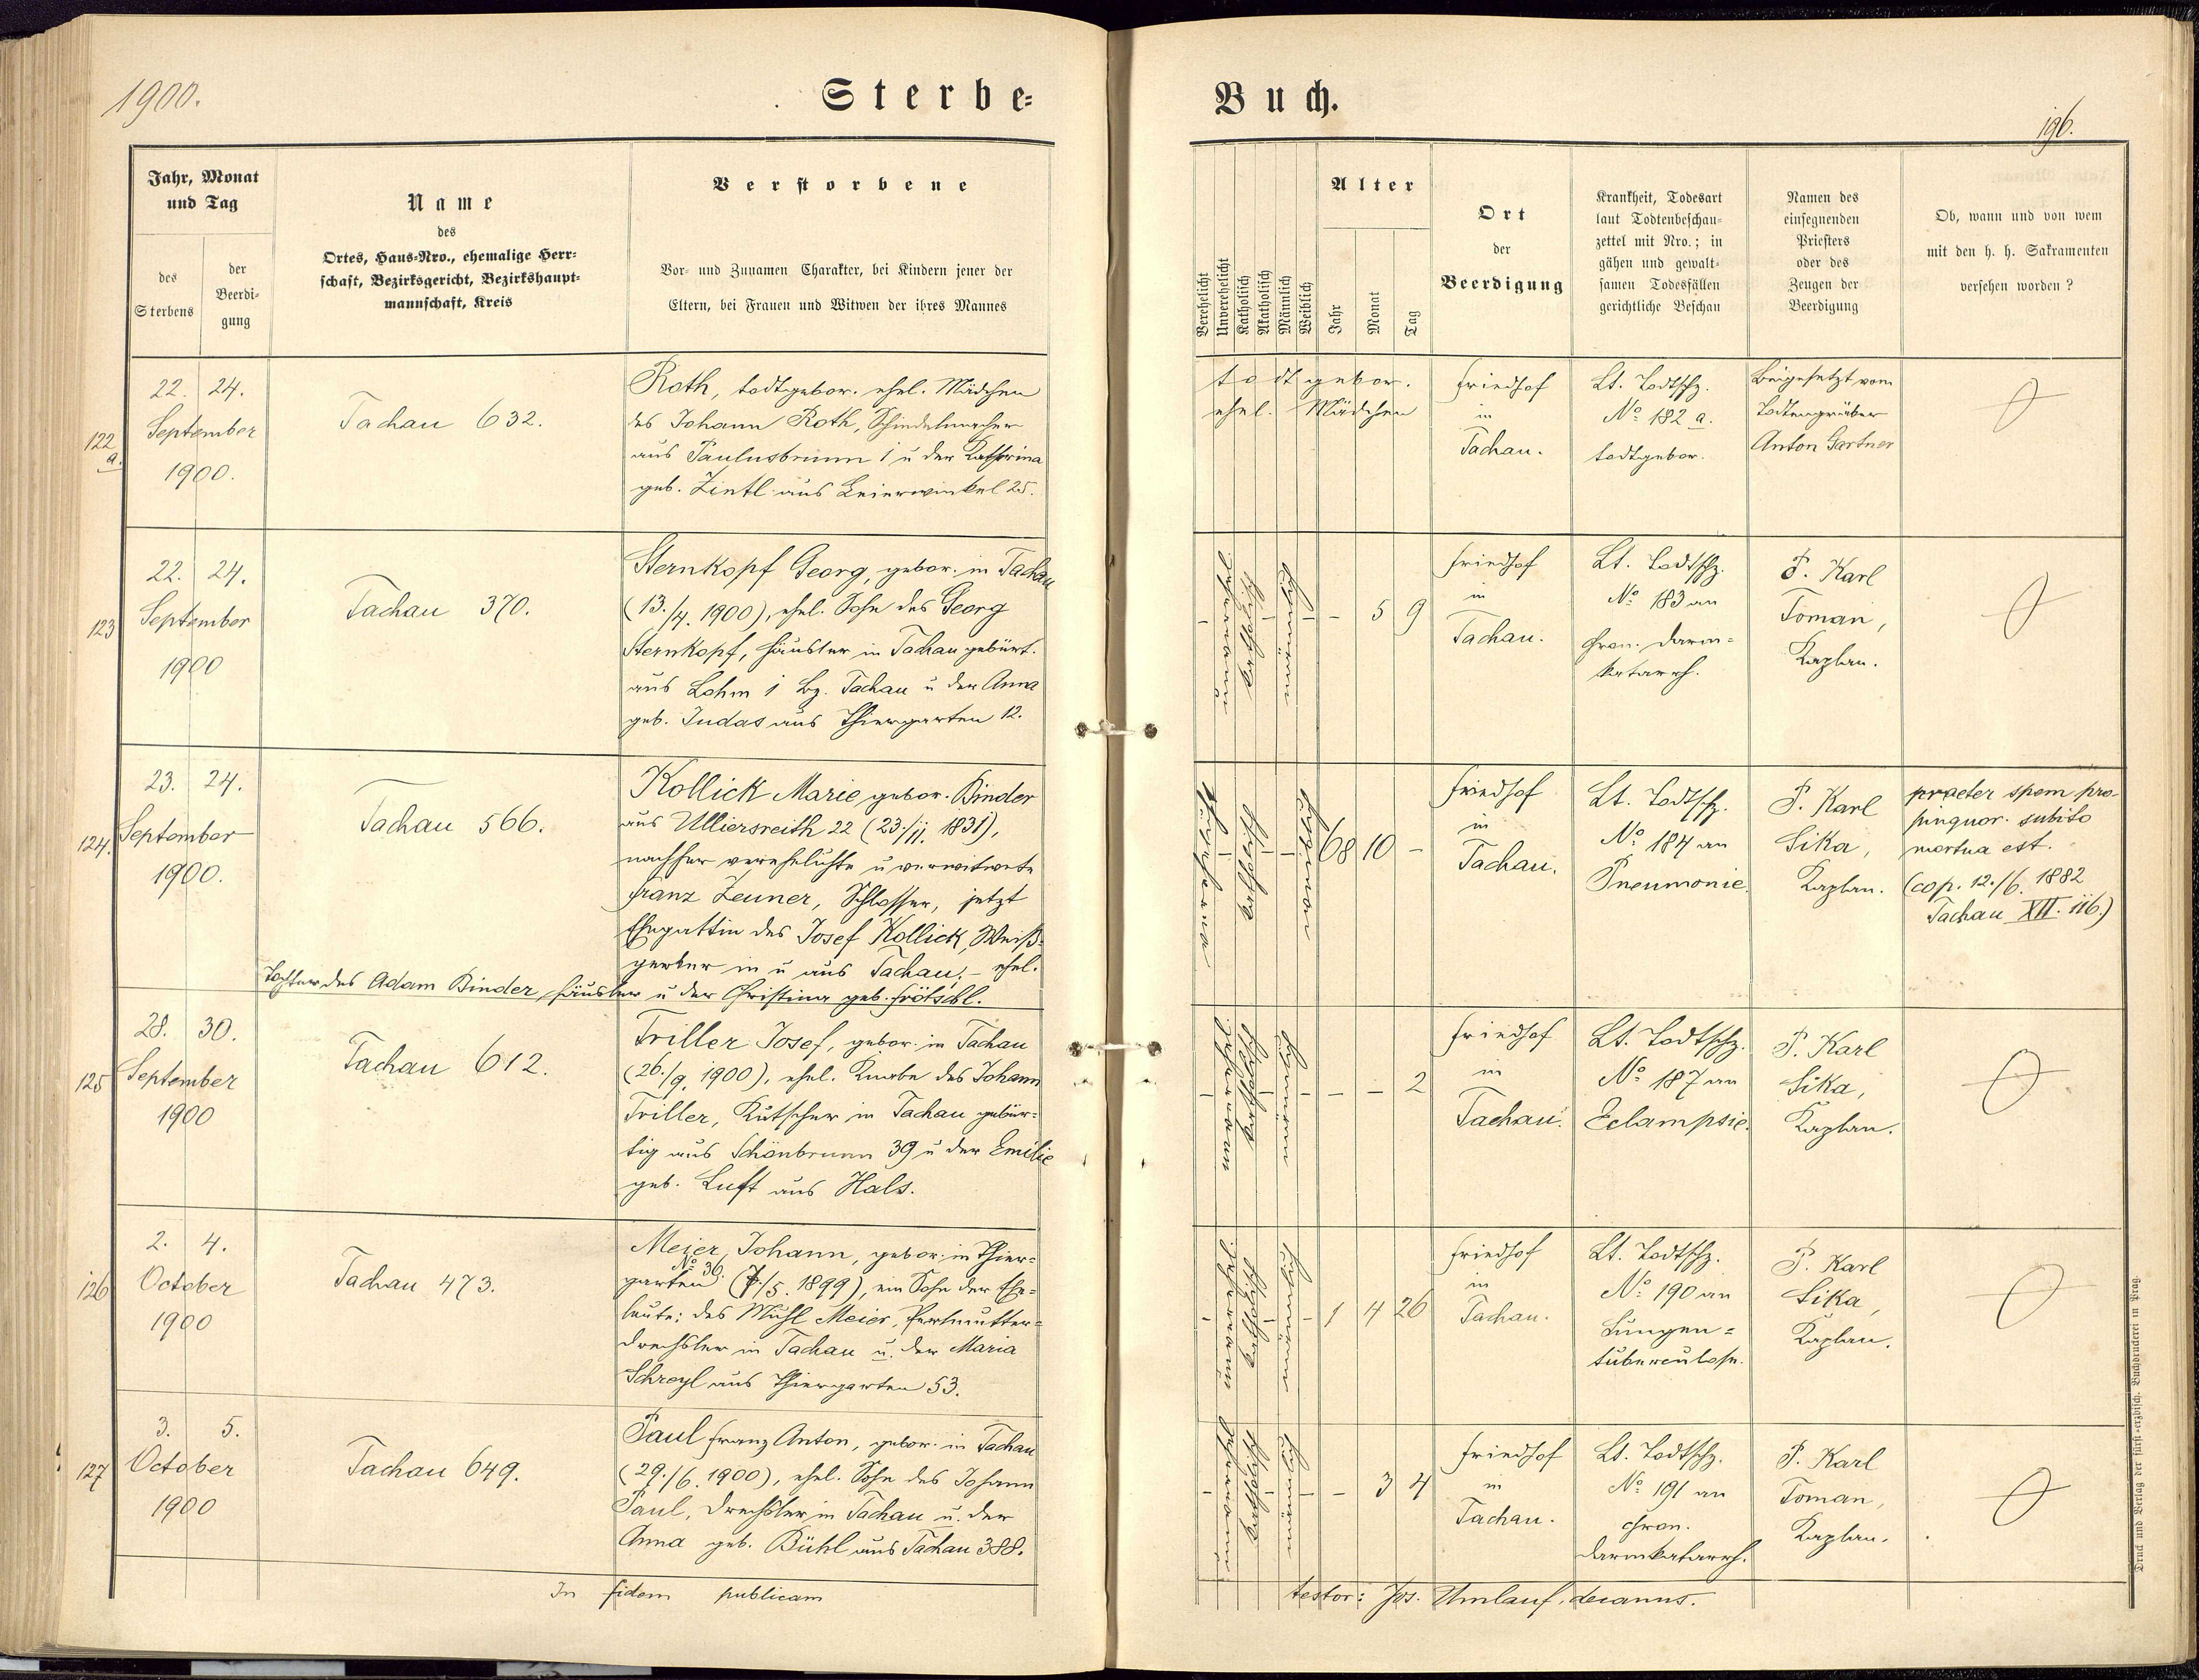 1900.
Sterbe-
Buch.
196.
Jahr, Monat
und Tag
des
Sterbens
der
Beerdi-
gung
Name
des
Ortes, Haus-Nro., ehemalige Herr-
schaft, Bezirksgericht, Bezirkshaupt-
mannschaft, Kreis
Verstorbene
Vor- und Zunamen Charakter, bei Kindern jener der
Eltern, bei Frauen und Witwen der ihres Mannes
Verehelicht
Unverehelicht
Katholisch
Akatholisch
Männlich
Weiblich
Alter
Jahr
Monat
Tag
Ort
der
Beerdigung
Krankheit, Todesart
laut Todtenbeschau-
zettel mit Nro.; in
gähen und gewalt-
samen Todesfällen
gerichtliche Beschau
Namen des
einsegnenden
Priesters
oder des
Zeugen der
Beerdigung
Ob, wann und von wem
mit den h. h. Sakramenten
versehen worden?
122
a.
22. 24.
September
1900.
Tachau 632.
Roth, todtgebor. ehel. Mädchen
des Johann Roth, Schindelmacher
aus Paulusbrunn 1 u der Katharina
geb. Zintl aus Leierwinkel 25.
todtgebor.
ehel. Mädchen
Friedhof
in
Tachau.
Lt. Todtschz.
No. 182 a.
todtgebor.
Beigesetzt vom
Todtengräber
Anton Gartner
123
22. 24.
September
1900
Tachau 370.
Sternkopf Georg, gebor. in Tachau
(13./4. 1900), ehel. Sohn des Georg
Sternkopf, Häusler in Tachau gebürt.
aus Lohm 1 Bz. Tachau u der Anna
geb. Judas aus Thiergarten 12.
- unverehel. katholisch - männlich - - 5 9
Friedhof
in
Tachau.
Lt. Todtschz.
No. 183 an
chron. Darm-
katarrh.
P. Karl
Toman,
Kaplan.
124.
23. 24.
September
1900.
Tachau 566.
Kollick Marie gebor. Binder
aus Ulliersreith 22 (23./11. 1831),
nachher verehelichte u verwitwete
Franz Zeuner, Schlosser, jetzt
Ehegattin des Josef Kollick, Weiß-
gerber in u aus Tachau; - ehel.
Tochter des Adam Binder, Häusler u der Christina geb. Frötschl.
verehelicht - katholisch - - weiblich 68 10 -
Friedhof
in
Tachau.
Lt. Todtschz.
No. 184 an
Pneumonie.
P. Karl
Sika,
Kaplan.
praeter spem pro-
pinquor. subito
mortua est.
(cop. 12./6. 1882
Tachau XII. 116.)
125
28. 30.
September
1900
Tachau 612.
Triller Josef, gebor. in Tachau
(26./9. 1900), ehel. Knabe des Johann
Triller, Kutscher in Tachau gebür-
tig aus Schönbrunn 39 u der Emilie
geb. Luft aus Hals.
- unverehel. katholisch - männlich - - - 2
Friedhof
in
Tachau.
Lt. Todtschz.
No. 187 an
Eclampsie.
P. Karl
Sika,
Kaplan.
126
2. 4.
October
1900
Tachau 473.
Meier Johann, gebor. in Thier-
garten No. 36 (7./5. 1899), ein Sohn der Ehe-
leute: des Meier, Perlmutter-
drechsler in Tachau u. der Maria
Schreyl aus Thiergarten 53.
- unverehel. katholisch - männlich - 1 4 26
Friedhof
in
Tachau.
Lt. Todtschz.
No. 190 an
Lungen-
tuberculose.
P. Karl
Sika,
Kaplan.
127
3. 5.
October
1900
Tachau 649.
Paul Franz Anton, gebor. in Tachau
(29./6. 1900), ehel. Sohn des Johann
Paul, Drechsler in Tachau u. der
Anna geb. Bühl aus Tachau 388.
- unverehel. katholisch - männlich - - 3 4
Friedhof
in
Tachau.
Lt. Todtschz.
No. 191 an
chron.
Darmkatarrh.
P. Karl
Toman,
Kaplan.
In fidem publicam
testor: Jos. Umlauf, decanus.
Druck und Verlag der fürst-erzbisch. Buchdruckerei in Prag.